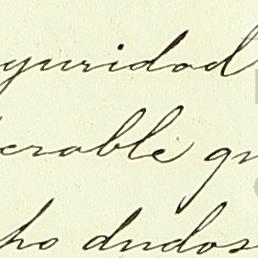 guridad
erable qu
ho dudos